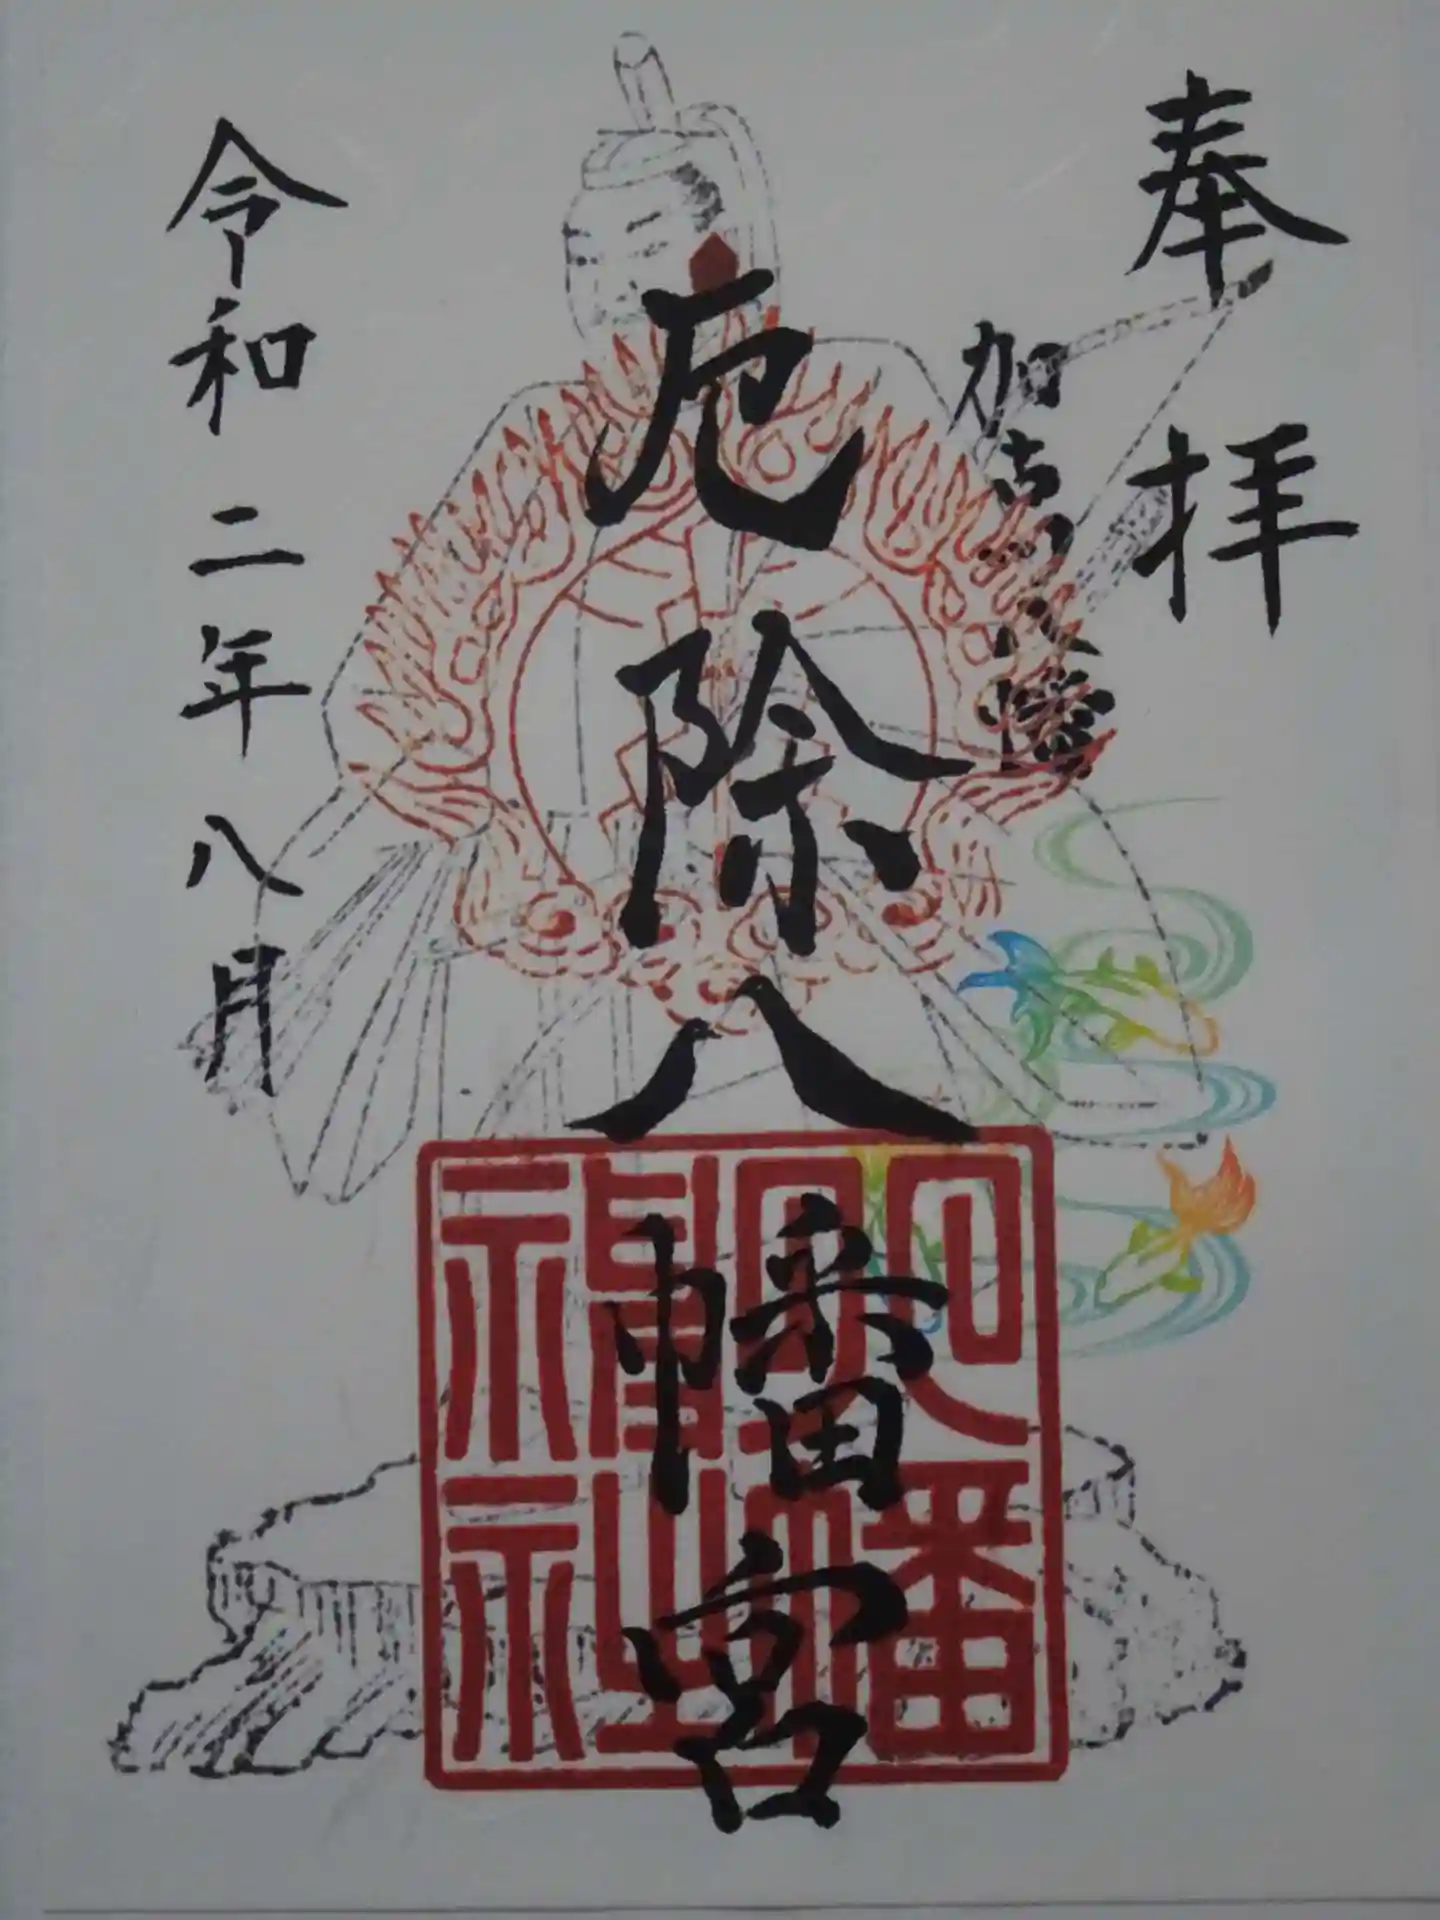 奉拝
加古川八幡
厄除八幡宮
八幡
神社
令和二年八月